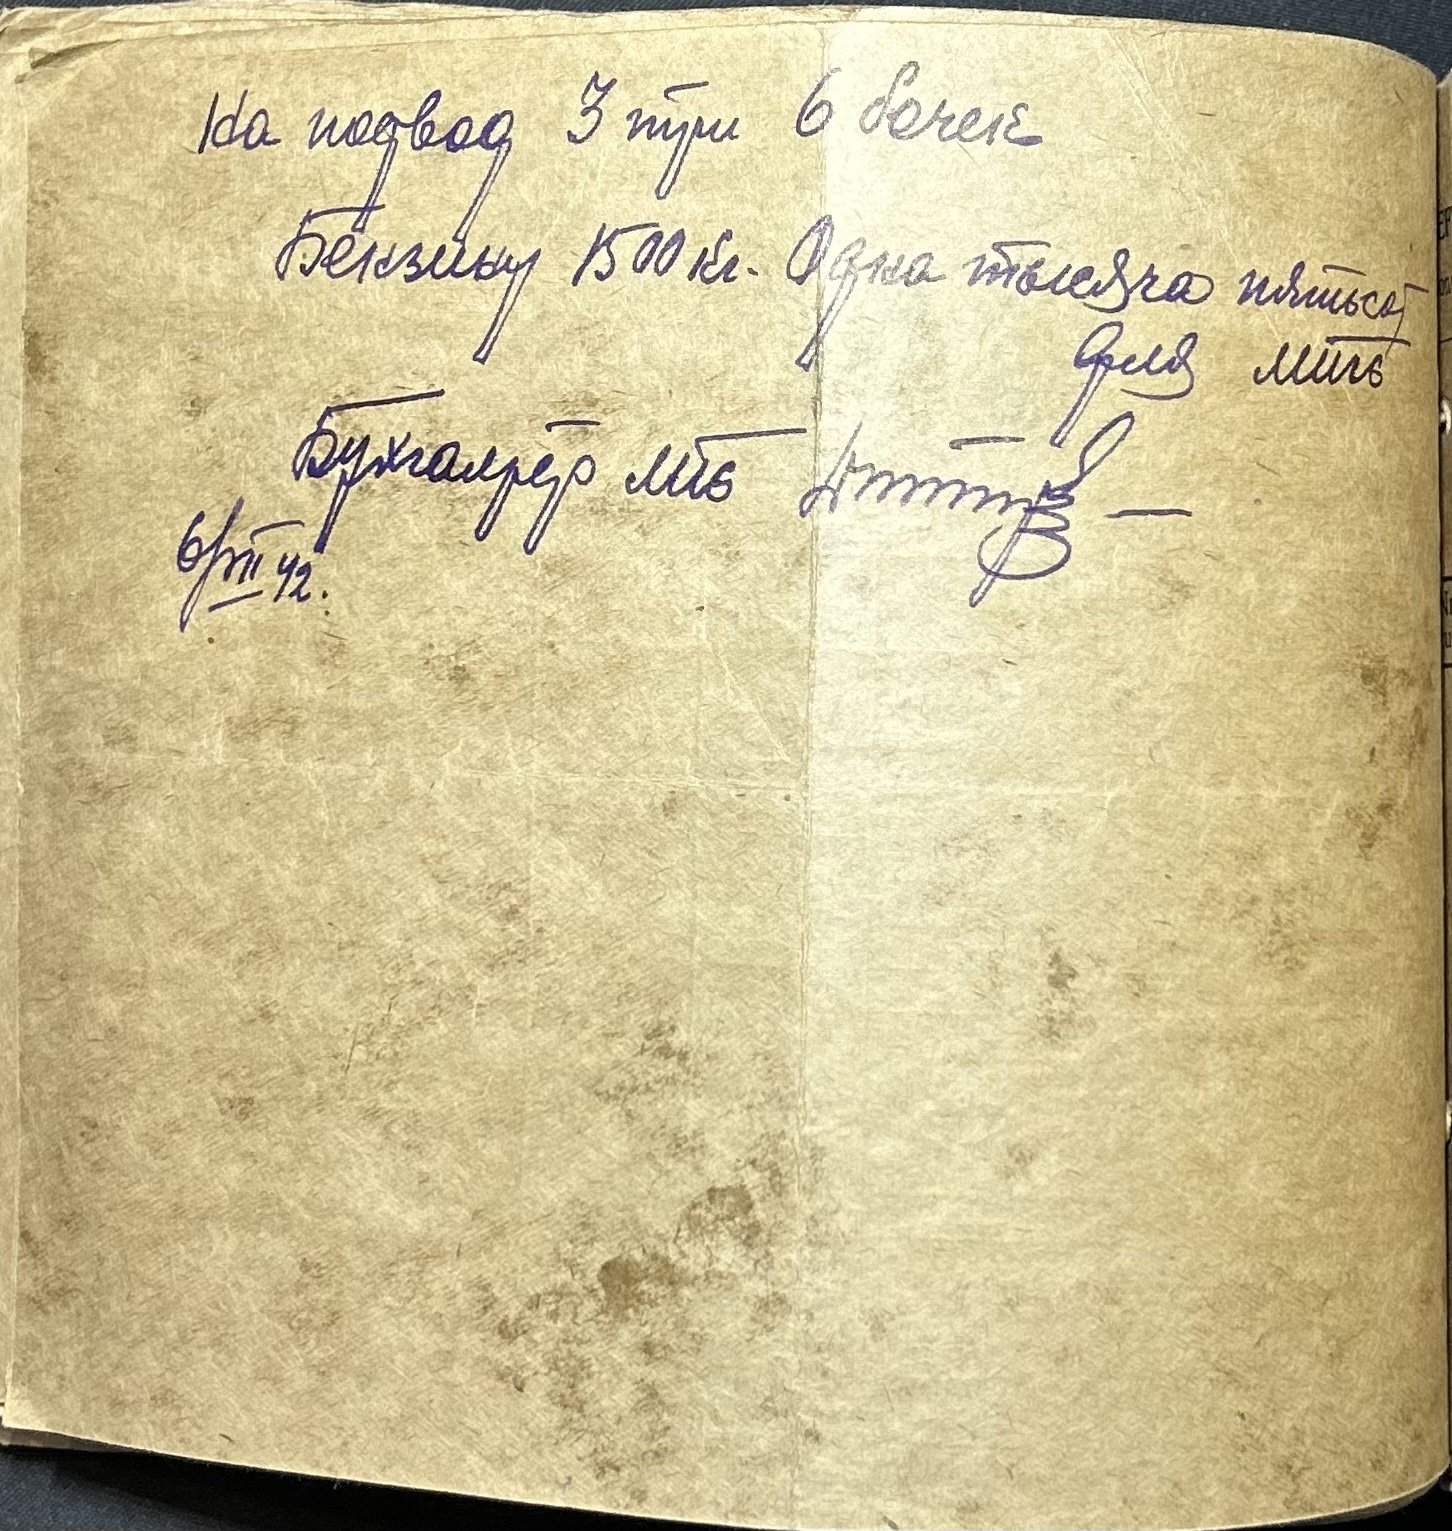 На подвод 3 три 6 бочек
Бензину 1500 кг. Одна тысяча пятьсот
для МТБ
Бухгалтер МТБ
6/VII 42.